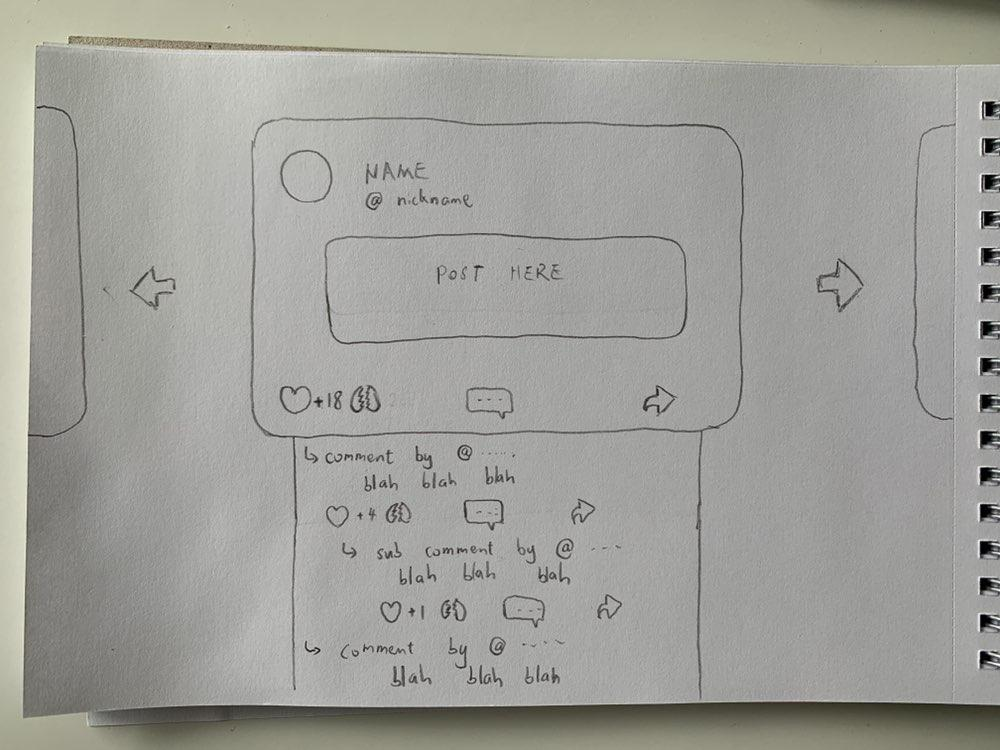 NAME
@ nickname
POST HERE
+18
↳ comment by @ ......
blah blah blah
+4
↳ sub comment by @ ----
blah blah blah
+1
↳ comment by @ -----
blah blah blah